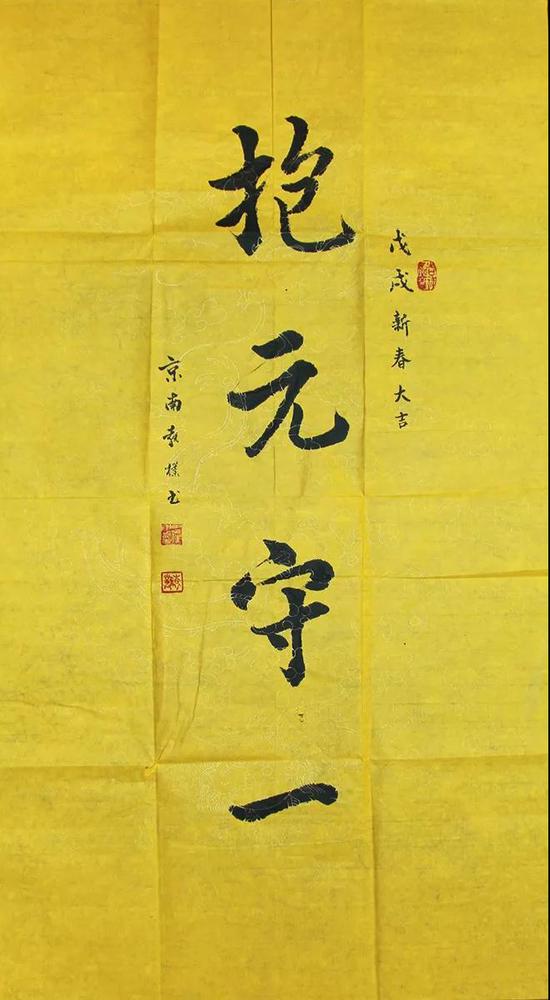 戊戌新春大吉
抱元守一
京南袁樸书